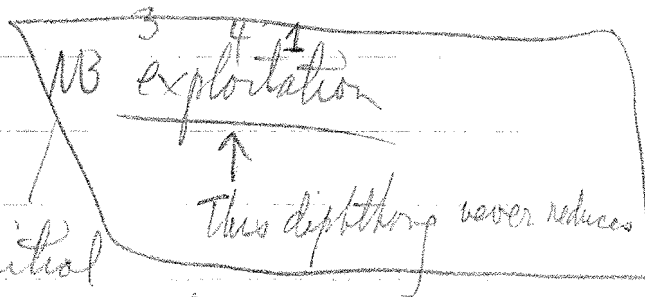 3 4 1
NB exploitation
↑
This diphthong never reduces
itial